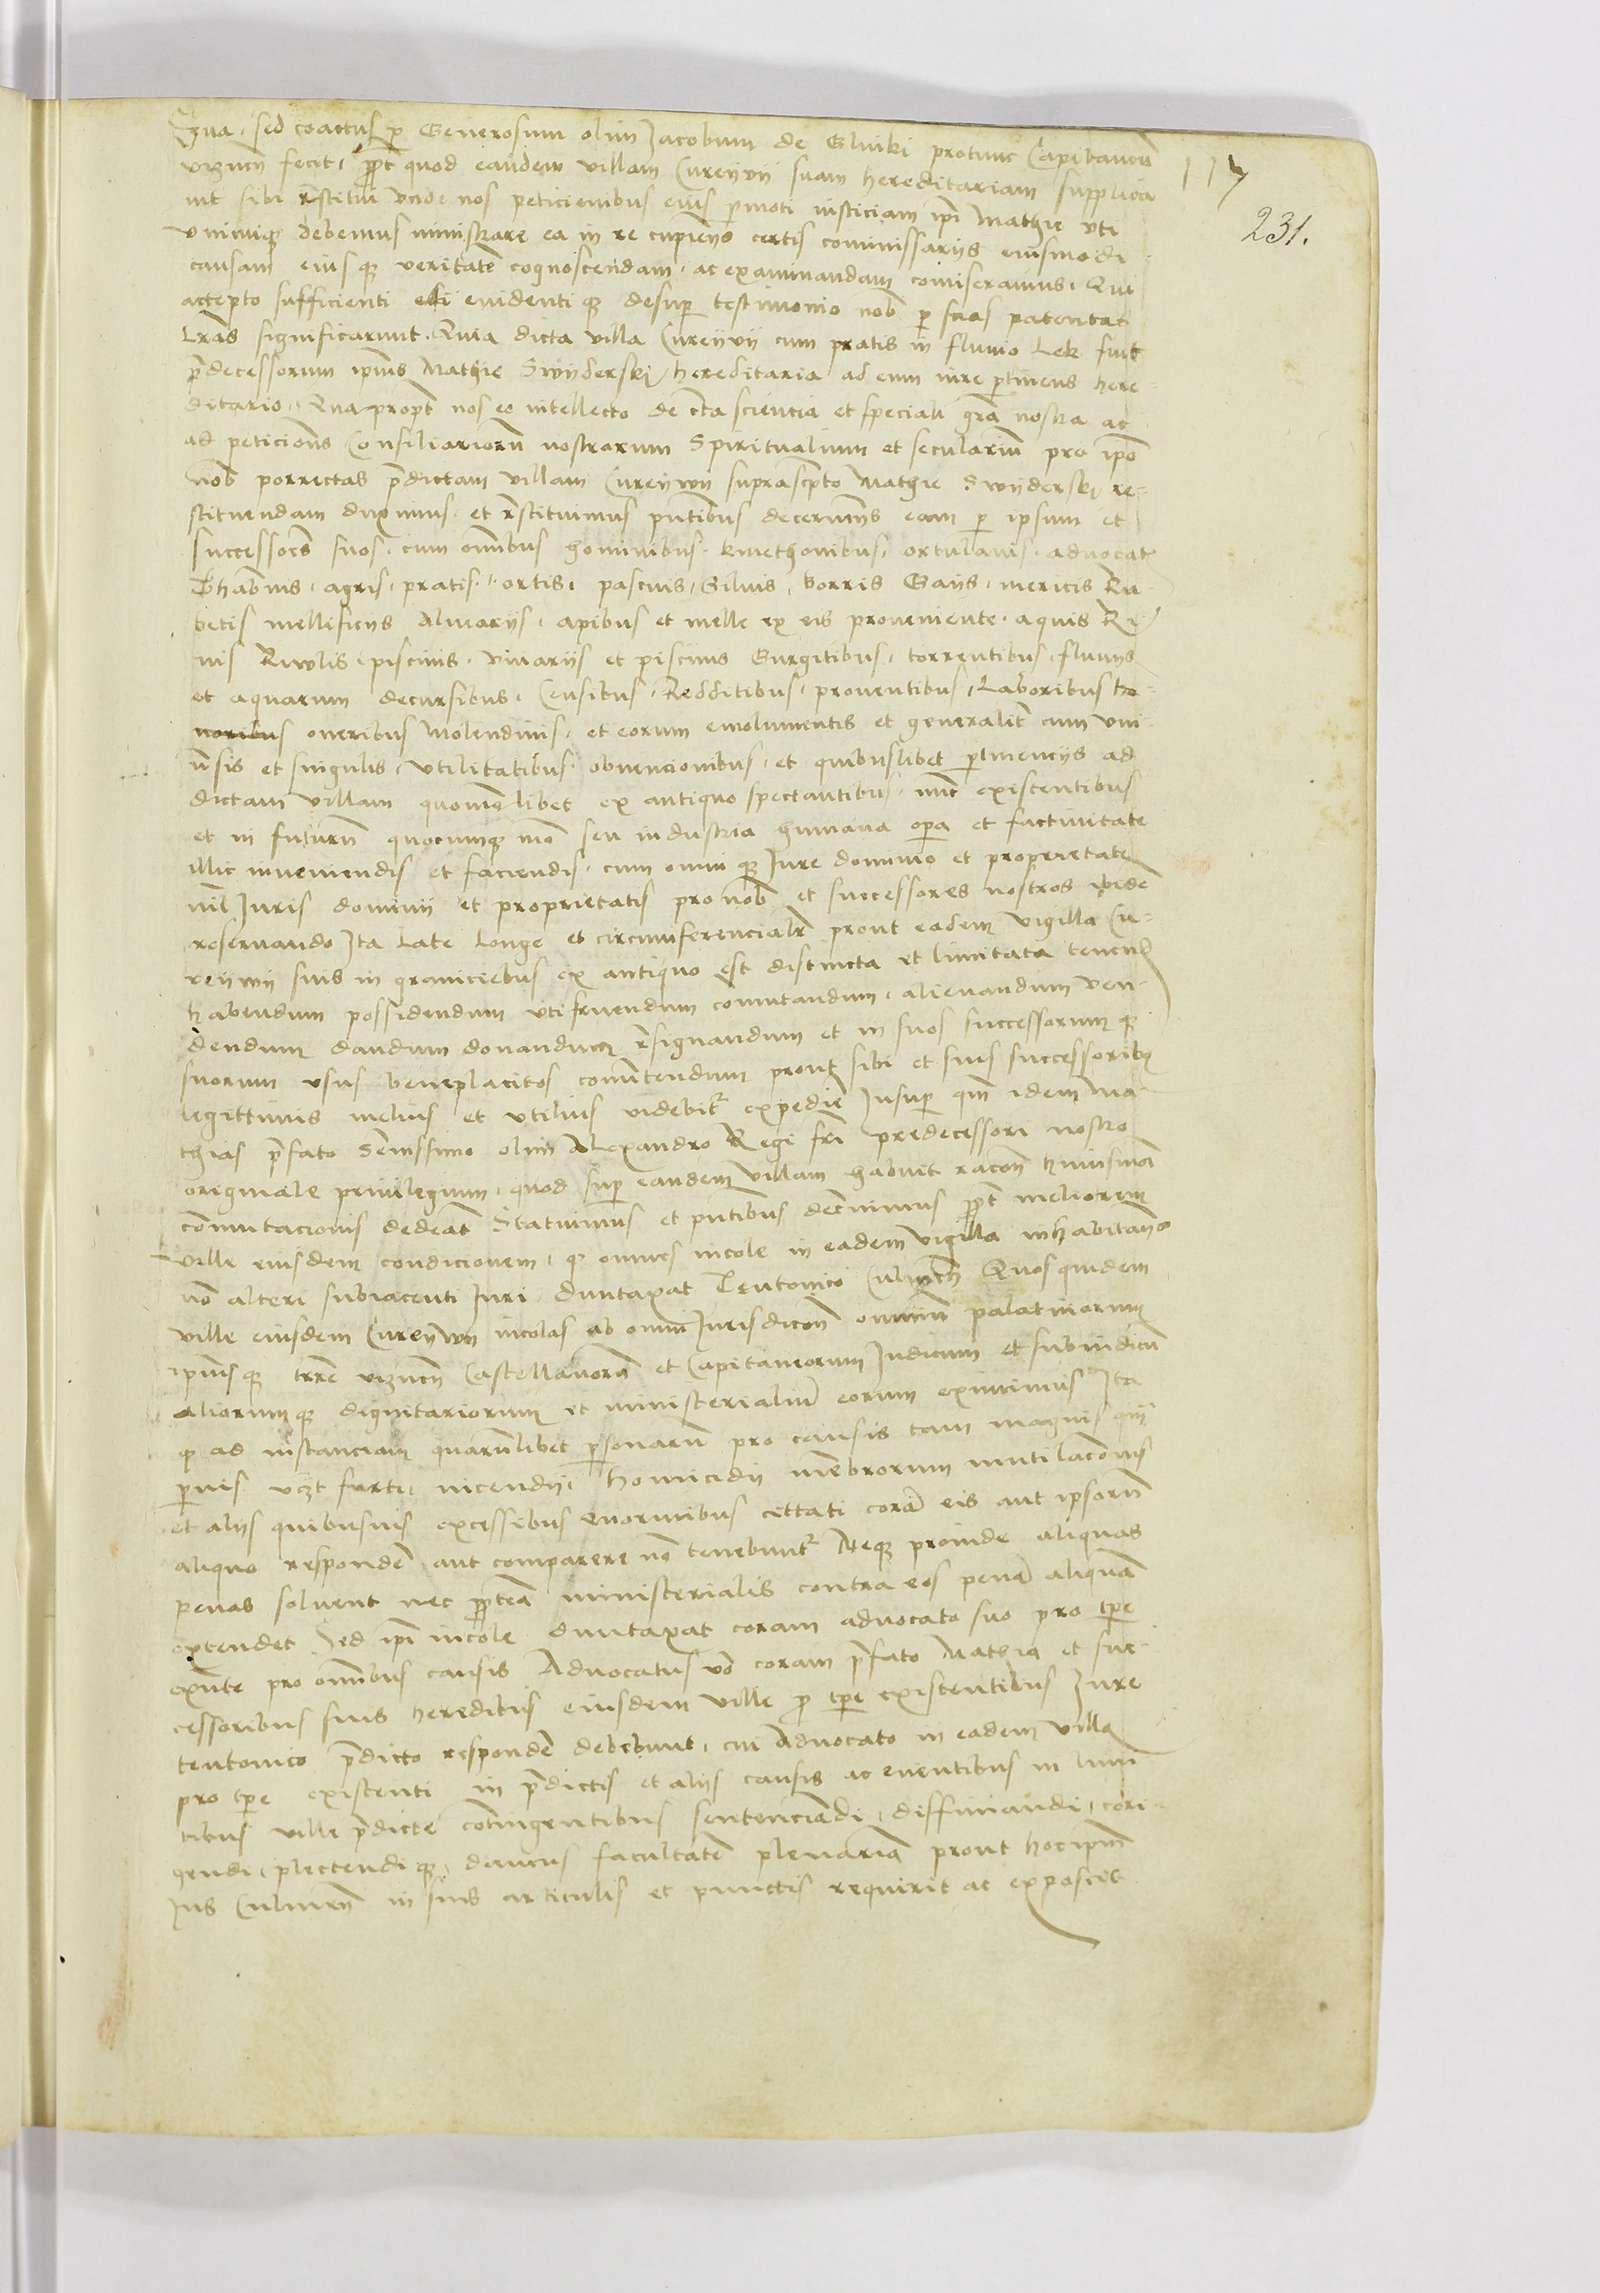 sua sed coactus p Generosum olim Jacobum de Glinki protunc Capitaneum
vizneñ fecit ppt quod eandem villam Cureywy suam hereditariam supplica
uit sibi restitui Vnde nos peticionibus eius pmoti iusticiam ipi Mathie vti
vnicuiq debemus ministrare ea in re cupiens certis comissariis eiusmodi
causam eiusq veritatē cognoscendam ac examinandam comiseramus Qui
accepto sufficienti eti euidentiq desup testimonio nob p suas patentes
Lras significarunt Quia dicta villa Cureyvy cum pratis in fluuio Lek fuit
pdecessorum ipius Mathie Swyderski hereditaria ad eum iure ptinens here-
ditario Quapropt nos eo intellecto de cta sciencia et speciali gra nostra ac
ad peticiones Consiliariorū nostrorum Spiritualium et seculariū pro ipo
nob porrectas pdictam villam Cureywy suprascpto Mathie Swyderski re-
stituendam duximus et restituimus pntibus decernens eam p ipsum et
successores suos cum omibus hominibus kmethonibus ortulanis aduocat
Thabnis agris pratis ortis pascuis Siluis borris Gaiis mericis Ru-
betis mellificiis Aluariis apibus et melle ex eis proueniente aquis Ri-
uis Riuulis piscinis viuariis et piscinis Gurgitibus torrentibus fluuiis
et aquarum decursibus Censibus Redditibus prouentibus Laboribus ho-
noribus oneribus Molendinis et eorum emolumentis et generalit cum vni-
uersis et singulis vtilitatibus obuencionibus et quibuslibet ptinenciis ad
dictam villam quomolibet ex antiquo spectantibus nunc existentibus
et in futurū quocumq mo seu industria humana opa et factiuitate
illic inueniendis et faciendis cum omniq Jure dominio et proprietate
nil Juris dominii et proprietatis pro nob et successores nostros ibidē
reseruando Ita Late Longe et circumferencialr prout eadem vigilla Cu-
reywy suis in graniciebus ex antiquo est distincta et limitata tenend
habendum possidendum vtifruendum comutandum alienandum ven-
dendum dandum donandum resignandum et in suos successorumq
suorum vsus beneplacitos conuertendum prout sibi et suis successoribus
legittimis melius et vtilius videbitr expedire Insup qm idem Ma-
thias pfato Serenissimo olim Alexandro Regi fri predecessori nostro
originale priuilegium quod sup eandem villam habuit racone huiusmoi
comutacionis dederat Statuimus et pntibus decernimus ppt meliorem
ville eiusdem condicionem q omnes incole in eadem vigilla inhabitans
no alteri subiacenti Juri duntaxat Teutonico Culmeñ Quos quidem
ville eiusdem Cureywy incolas ab omni Jurisdicone omnium palatinorum
ipiusq trre vizneñ Castellanorū et Capitaneorum Judicum et subiudicū
aliorumq dignitariorum et ministerialium eorum eximimus Ita
q ad instanciam quarūlibet psonarū pro causis tam magnis qm
puis vczt furti incendii homicidii membrorum mutilaconis
et aliis quibusuis excessibus enormibus cittati corā eis aut ipsorū
aliquo respondere aut comparere no tenebuntr Neq proinde aliquas
penas soluent nec pptea ministerialis contra eos penā aliquā
extendet Sed ipi incole duntaxat coram aduocato suo pro tpe
exnte pro omibus causis Aduocatus vo coram pfato Mathia et suc-
cessoribus suis hereditus eiusdem ville p tpe existentibus Jure
teutonico pdicto respondere debebunt cui Aduocato in eadem villa
pro tpe existenti in pdictis et aliis causis ac euentibus in limi
tibus ville pdicte contingentibus sentenciandi diffiniandi cori-
gendi plectendiq damus facultatē plenariā prout hoc ipm
ius Culmeñ in suis articulis et punctis requirit ac exposcit
117
231.